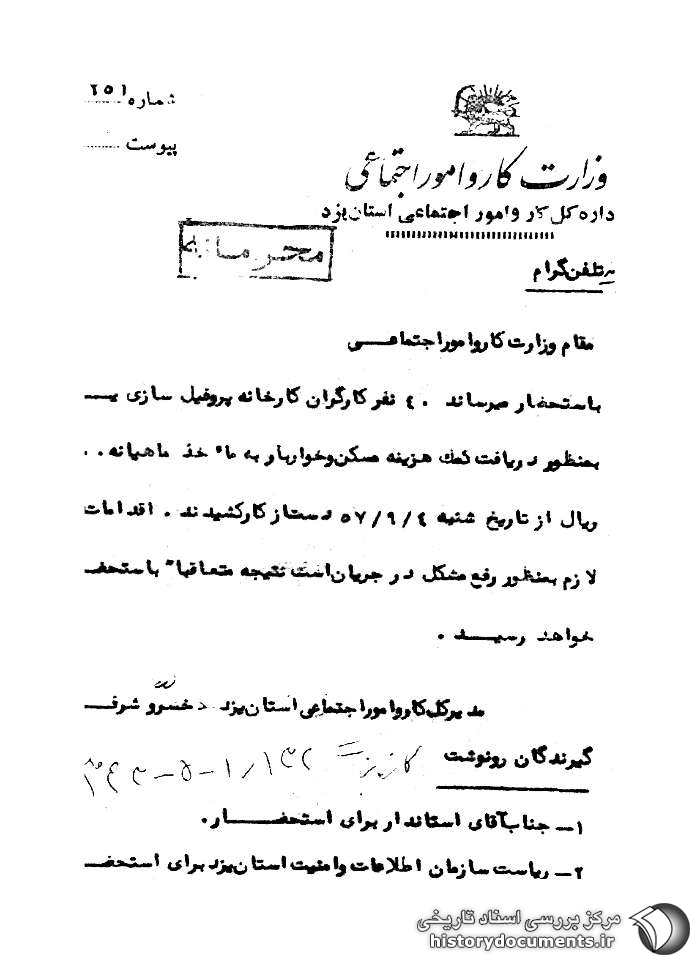 شماره ۲۵۱
پیوست ........
وزارت کار و امور اجتماعی
داره کل کار و امور اجتماعی استان یزد
محرمانه
تلفن گرام
مقام وزارت کار و امور اجتماعی
باستحضار میرساند ۴۰ نفر کارگران کارخانه پروفیل سازی یـ
بمنظور دریافت کمک هزینه مسکن و خواربار به مأخذ ماهیانه ۰۰
ریال از تاریخ شنبه ۵۷/۹/۴ دست از کار کشیدند . اقدامات
لازم بمنظور رفع مشکل در جریان است نتیجه متعاقباً باستحضـ
خواهد رسید .
مدیرکل کار و امور اجتماعی استان یزد خسرو شرفـ
گیرندگان رونوشت
۱ـ جناب آقای استاندار برای استحضار.
۲ـ ریاست سازمان اطلاعات و امنیت استان یزد برای استحضـ
مرکز بررسی اسناد تاریخی
historydocuments.ir